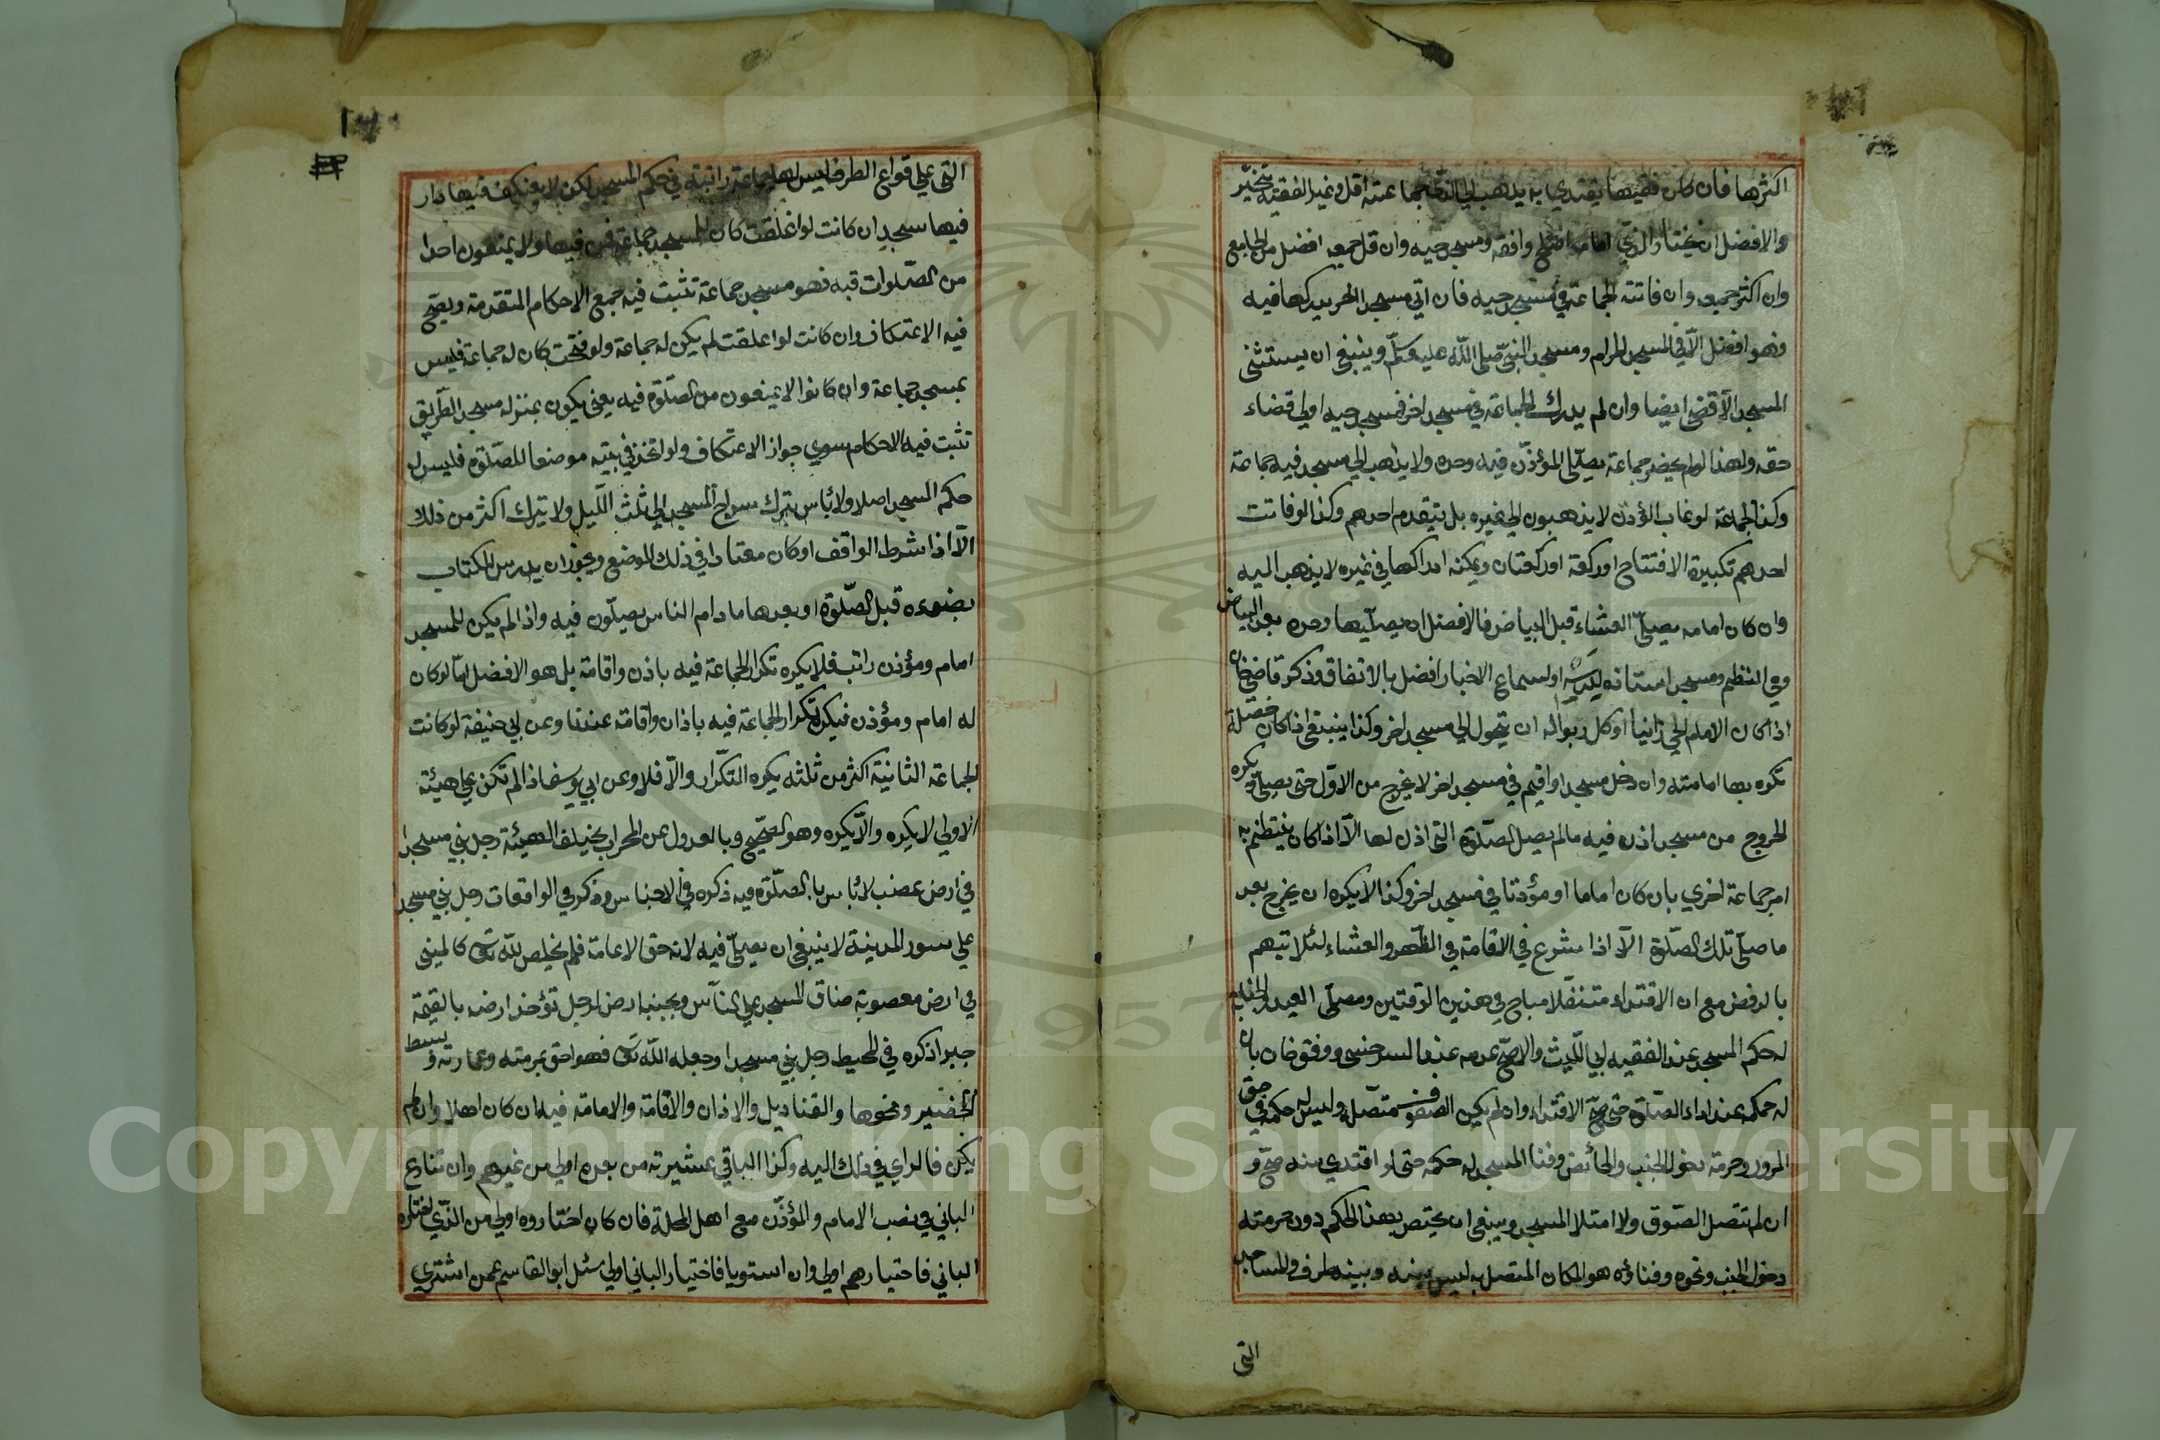 اكثرها فان كان فقيها يقتدي به يذهب الى الذي جماعته اقل وغير الفقيه يتخير
والافضل ان يختار الذي امامه اصلح وافقه ومسجد حيه وان قل جمعه افضل من الجامع
وان اكثر جمعه وان فاتته الجماعة في مسجد حيه فان اتي مسجد اخر يدركها فيه
فهو افضل الا في المسجد الحرام ومسجد النبي صلى الله عليه وسلم وينبغي ان يستثنى
المسجد الاقصى ايضا وان لم يدرك الجماعة في مسجد اخر فمسجد حيه اولى قضاء
حقه ولهذا لو لم يحضر جماعة يصلي المؤذن فيه وحده ولا يذهب الي مسجد فيه جماعة
وكذا الجماعة لو غاب المؤذن لا يذهبون الي غيره بل يتقدم احدهم وكذا لو فاتت
احدهم تكبيرة الافتتاح او ركعة او ركعتان ويمكنه ادراكها في غيره لا يذهب اليه
وان كان امامه يصلي العشاء قبل البياض فالافضل ان يصليها وحده بعد البياض
وفي النظم ومسجد استاذه لدرسه او لسماع الاخبار افضل بالاتفاق وذكر قاضيخان
اذا كان الامام الحي زانيا او كل ربوا له ان يتحول الي مسجد اخر وكذا ينبغي اذا كان خصلة
تكره بها امامته وان دخل مسجدا واقيم في مسجد اخر لا يخرج من الاول حتى يصلي ويكره
الخروج من مسجد اذن فيه ما لم يصل الصلوة التى اذن لها الا اذا كان ينتظم به
امر جماعة اخري بان كان اماما او مؤذنا في مسجد اخر وكذا لا يكره ان يخرج بعد
ما صلى تلك الصلوة الا اذا شرع في الاقامة في الظهر والعشاء لئلا يتهم
بالرفض مع ان الاقتداء متنفلا مباح في هذين الوقتين ومصلى العيد والجنازة
له حكم المسجد عند الفقيه ابي الليث والاصح عدمه عند السرخسي ووفق خان بان
له حكمه عند اداء الصلوة حتى صح الاقتداء وان لم يكن الصفوف متصلة وليس له حكمه في حق
المرور وحرمة دخول الجنب والحائض وفنا المسجد له حكمه حتى لو اقتدي منه صح و
ان لم تتصل الصفوف ولا امتلا المسجد وينبغي ان يختص بهذا الحكم دون حرمة
دخول الجنب ونحوه وفناؤه هو المكان المتصل به ليس بينه وبينه طرف والمساجد
التى
التى على قوارع الطرق ليس لها جماعة راتبة في حكم المسجد لكن لا يعتكف فيها دار
فيها مسجد ان كانت لو اغلقت كان للمسجد جماعة ممن فيها ولا يمنعون احدا
من الصلوات فيه فهو مسجد جماعة تثبت فيه جميع الاحكام المتقدمة ويصح
فيه الاعتكاف وان كانت لو اغلقت لم يكن له جماعة ولو فتحت كان له جماعة فليس
بمسجد جماعة وان كانوا لا يمنعون من الصلوة فيه يعني يكون بمنزلة مسجد الطريق
تثبت فيه الاحكام سوي جواز الاعتكاف ولو اتخذ في بيته موضعا للصلوة فليس له
حكم المسجد اصلا ولا بأس بترك سراج المسجد الي ثلث الليل ولا يترك اكثر من ذلك
الا اذا شرط الواقف او كان معتادا في ذلك الموضع ويجوز ان يدرس الكتاب
بضوءه قبل الصلوة او بعدها ما دام الناس يصلون فيه واذا لم يكن للمسجد
امام ومؤذن راتب فلا يكره تكرار الجماعة فيه باذن واقامة بل هو الافضل اما لو كان
له امام ومؤذن فيكره تكرار الجماعة فيه باذان واقامة عندنا وعن ابي حنيفة لو كانت
الجماعة الثانية اكثر من ثلثة يكره التكرار والا فلا وعن ابي يوسف اذا لم تكن علي هيئة
الاولي لا يكره والا يكره وهو الصحيح وبالعدول عن المحراب يختلف الهيئة رجل بني مسجدا
في ارض غصب لا بأس بالصلوة فيه ذكره في الاجناس وذكر في الواقعات رجل بني مسجدا
علي سور المدينة لا ينبغي ان يصلي فيه لانه حق العامة فلم يخلص لله تعالى كالمبني
في ارض مغصوبة ضاق المسجد علي الناس وبجنبه ارض لرجل تؤخذ ارضه بالقيمة
جبرا ذكره في المحيط رجل بني مسجدا وجعله الله تعالى فهو احق بمرمته وعمارته وبسط
الحصير ونحوها والقناديل والاذان والاقامة والامامة فيه ان كان اهلا وان لم
يكن فالراي في ذلك اليه وكذا الباقي عشيرته من بعده اولي من غيرهم وان تنازع
الباني في نصب الامام والمؤذن مع اهل المحلة فان كان اختاروه اولي من الذي اختاره
الباني فاختيارهم اولي وان استويا فاختيار الباني اولي سئل ابو القاسم عمن اشتري
Copyright © King Saud University
1957